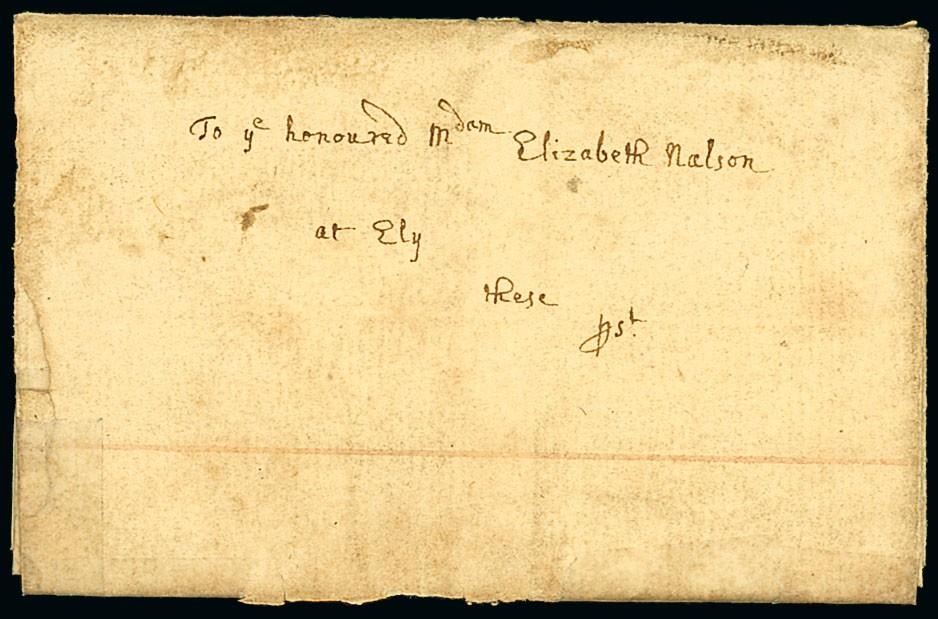 To yᵉ honoured Mᵈᵃᵐ Elizabeth Nalson
at Ely
these
pst